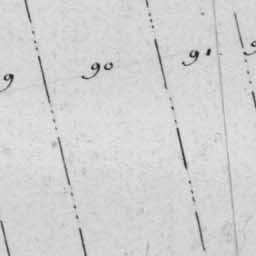 90
91.